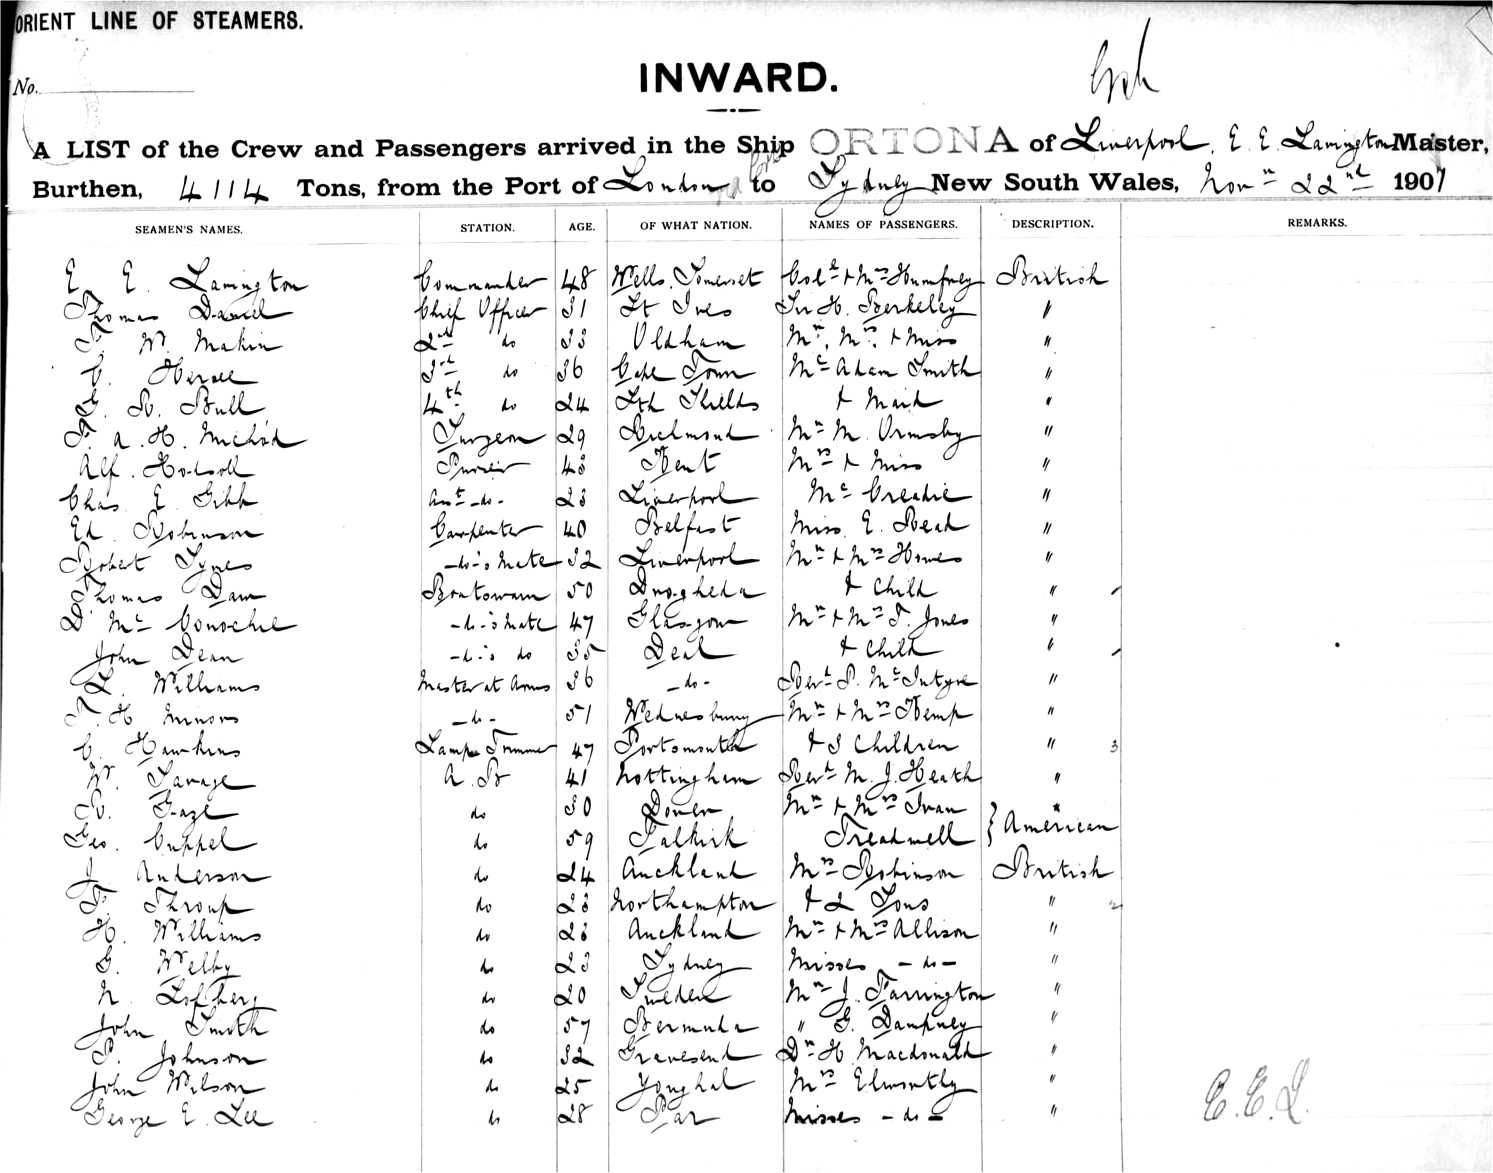 ORIENT LINE OF STEAMERS.
No.
INWARD.
A LIST of the Crew and Passengers arrived in the Ship ORTONA of Liverpool, E. E. Lavington Master,
Burthen, 4114 Tons, from the Port of London to Sydney New South Wales, Novr 22nd 1907
SEAMEN'S NAMES. STATION. AGE. OF WHAT NATION. NAMES OF PASSENGERS. DESCRIPTION. REMARKS.
E. E. Lavington Commander 48 Wells. Somerset Col. & Mrs Humfrey British
Thomas Daniel Chief Officer 31 St Ives Sir H. Berkeley "
W. Makin 2nd do 33 Oldham Mr, Mrs, & Miss "
C. 3rd do 36 Cape Town McAdam Smith "
G. R. Bull 4th do 24 Sth Shields & Maid "
A. H. Surgeon 29 Richmond Mr M. Ormsby "
Alf. Hodsoll Purser 43 Kent Mrs & Miss "
Chas E. Gibb Asst -do- 23 Liverpool McCreadie "
Ed. Robinson Carpenter 40 Belfast Miss E. Read "
Robert Synes -do-'s Mate 32 Liverpool Mr & Mrs Howes "
Thomas Dam Boatswain 50 Drogheda & Child "
D. McConochie -do-'s Mate 47 Glasgow Mr & Mrs T. Jones "
John Dean -do-'s do 35 Deal & Child "
L. Williams Master at Arms 36 -do- Revd P. McIntyre "
T. H. Minors -do- 51 Wednesbury Mr & Mrs Kemp "
C. Hawkins Lamp Trimmer 47 Portsmouth & 3 Children " 3
W. Savage A. B 41 Nottingham Revd M. J. Heath "
R. Gaze do 30 Dover Mr & Mrs Ivan
Geo. Cuppel do 59 Falkirk Treadwell } American
J. Anderson do 24 Auckland Mrs Robinson British
F. Throup do 23 Northampton & 2 Sons " 2
H. Williams do 23 Auckland Mr & Mrs Allison "
G. Welby do 23 Sydney Misses -do- "
N. Lofberg do 20 Sweden Mr J. Farrington "
John Smith do 57 Bermuda " G. Dampney "
P. Johnson do 32 Gravesend Dr H. Macdonald "
John Wilson do 25 Youghal Mrs "
George E. Lee do 28 Par Misses -do- "
E.E.L.